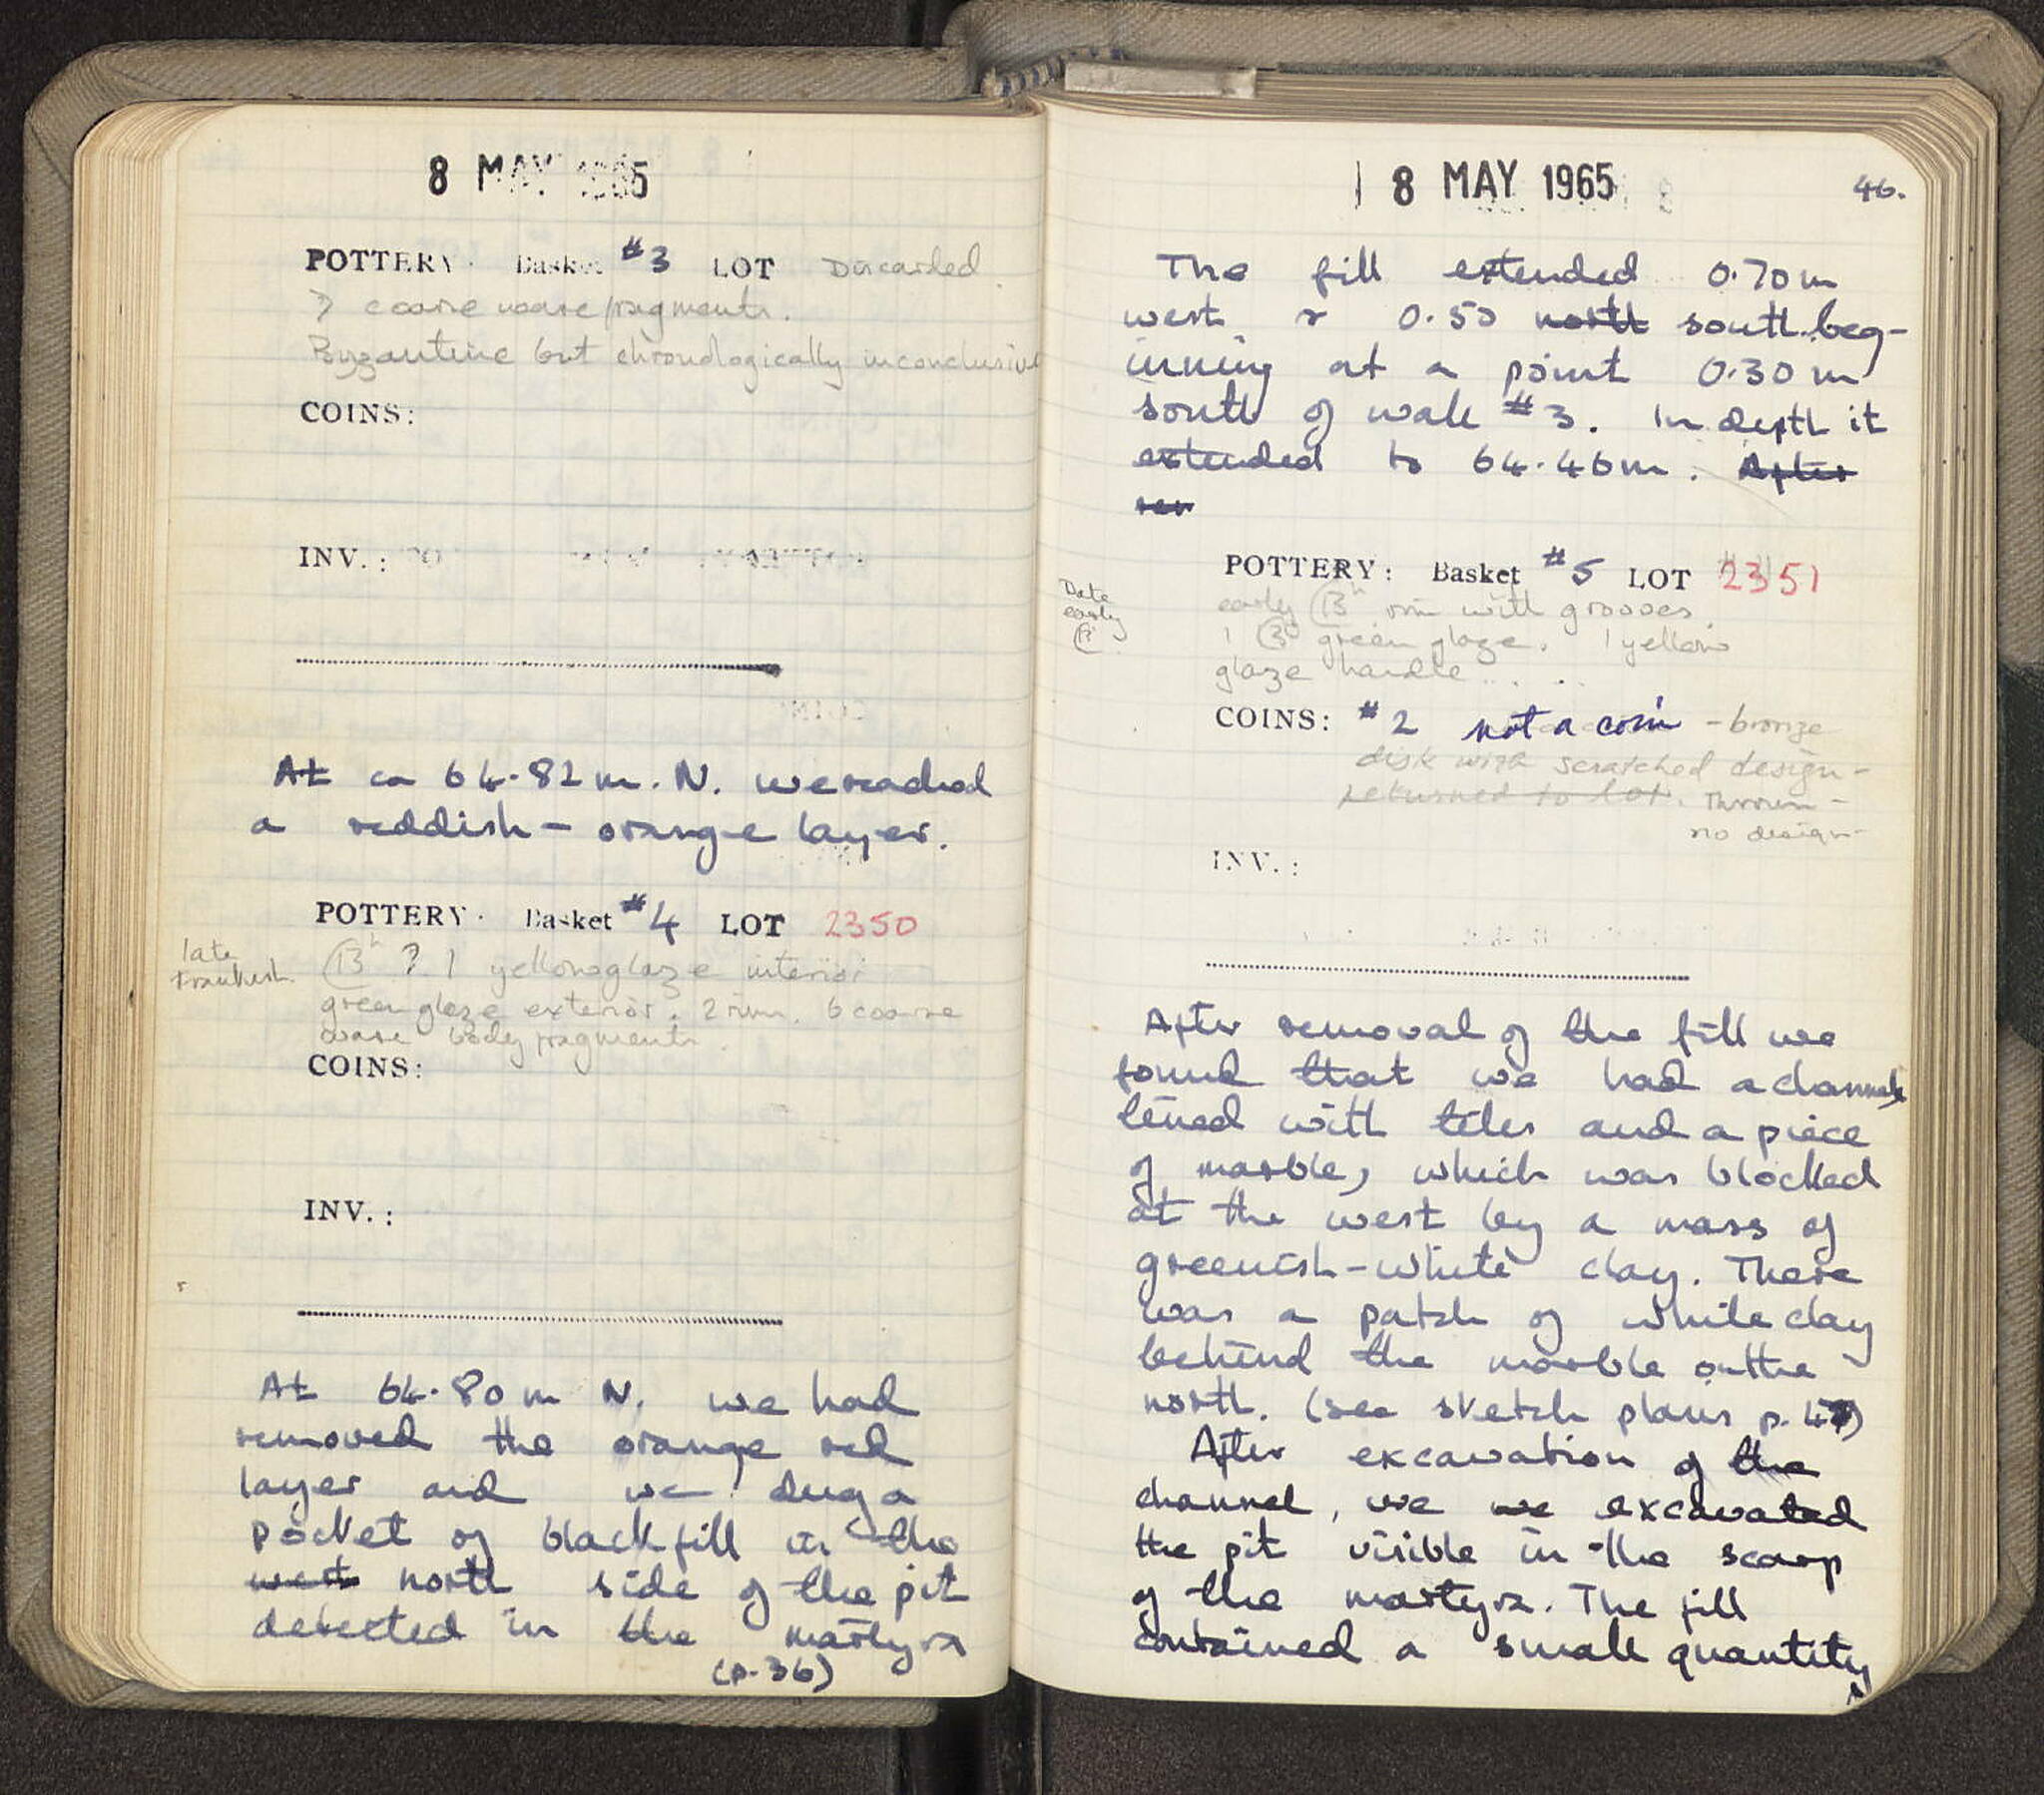 8 MAY 1965
POTTERY: Basket #3 LOT Discarded
7 coarse ware fragments.
Byzantine but chronologically inconclusive
COINS:
INV.:
At ca 64.82 m. N. we reached
a reddish-orange layer.
POTTERY: Basket #4 LOT 2350
late
Frankish
13th ? 1 yellow glaze interior
green glaze exterior. 2 rim. 6 coarse
ware body fragments.
COINS:
INV.:
At 64.80 m N. we had
removed the orange red
layer and we dug a
pocket of black fill in the
west north side of the pit
detected in the martyra
(p. 36)
18 MAY 1965
46.
The fill extended 0.70 m
west & 0.50 north south beg-
inning at a point 0.30 m
south of wall #3. In depth it
extended to 64.46 m. After
rem
POTTERY: Basket #5 LOT 2351
Date
early
early 13th rim with grooves.
1 13th green glaze. 1 yellow
glaze handle
COINS: #2 not a coin - bronze
disk with scratched design -
returned to lot. Thrown -
no design -
INV.:
After removal of the fill we
found that we had a channel
lined with tiles and a piece
of marble, which was blocked
at the west by a mass of
greenish-white clay. There
was a patch of white clay
behind the marble on the
north. (see sketch plans p. 47)
After excavation of the
channel, we we excavated
the pit visible in the scarp
of the martyra. The fill
contained a small quantity